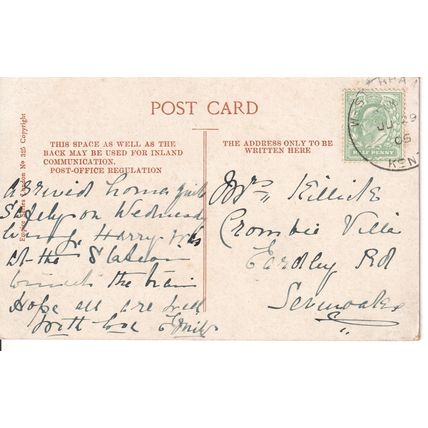 POST CARD
THIS SPACE AS WELL AS THE
BACK MAY BE USED FOR INLAND
COMMUNICATION.
POST-OFFICE REGULATION
THE ADDRESS ONLY TO BE
WRITTEN HERE
No 325 Copyright
Arrived home quite
Safely on Wednesd
Harry was
at the Station
the train
Hope all are well
With love Emily
Mrs Killick
Crombie Villa
Eardley Rd
Sevenoaks
HALF PENNY
JU 29
06
KEN